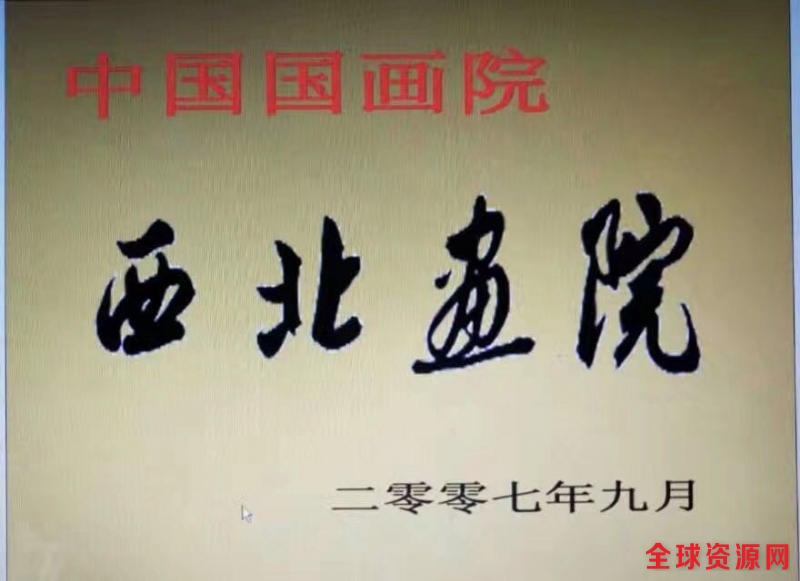 中国国画院
西北畫院
二零零七年九月
全球资源网